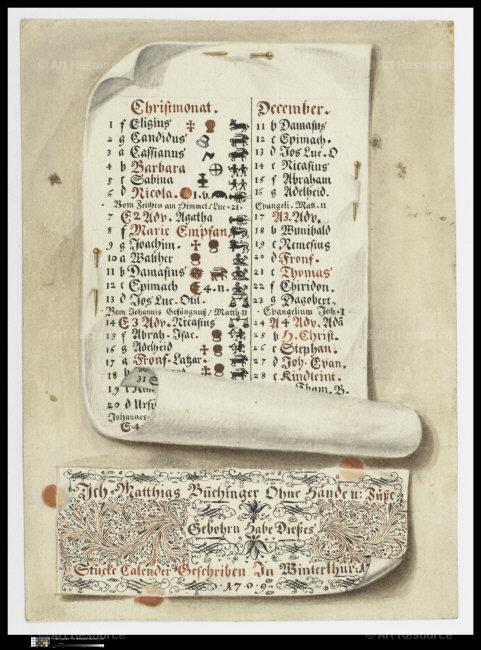 Christmonat.
1 f Eligius
2 g Candidus
3 a Cassianus
4 b Barbara
5 c Sabina
6 d Nicola. 1. v.
Vom Zeichen am Himmel/Luc. 21.
7 E 2 Adv. Agatha
8 f Mariæ Empfan.
9 g Joachim.
10 a Walther
11 b Damasius
12 c Epimach 4. n.
13 d Jos Luc. Otil.
Vom Johannis Gefängnuß/Matth. 11
14 E 3 Adv. Nicasius
15 f Abrah. Isac.
16 g Adelheid
17 a Fronf. Lazar.
18 b
19 c
20 d Ursi
Johannes
E 4
31
December.
11 b Damasius
12 c Epimach.
13 d Jos Luc. O
14 e Nicasius
15 f Abraham
16 g Adelheid.
Evangeli. Matt. 11
17 A 3. Adv.
18 b Wunibald
19 c Nemesius
20 d Fronf.
21 e Thomas
22 f Chiridon.
23 g Dagobert.
Evangelium Joh. 1
24 A 4 Adv. Ada
25 b H. Christ.
26 c Stephan.
27 d Joh. Evan.
28 e Kindleint.
Tham. B.
Ich Matthias Büchinger Ohne Hände u: Füße
Gebohrn Habe Dießes
Stucke Calender Geschriben In Winterthur: A
1709
© Art Resource
© Art Resource
© Art Resource
© Art Resource